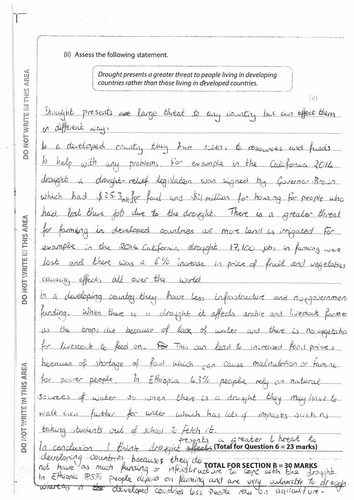 (ii) Assess the following statement.
Drought presents a greater threat to people living in developing
countries rather than those living in developed countries.
Drought presents large threat to any country but can effect them
in different way.
In a developed country they have access to resources and funds
to help with any problems. For example in the California 2014
drought a drought-relief legislation was signed by Governor Brown
which had $25.3 for food and $21 million for housing for people who
had lost there job due to the drought. There is a greater threat
for farming in developed countries as more land is irrigated For
example in the 2014 California drought 17,100 jobs in farming were
lost and there was a 6% increase in price of fruit and vegetables
causing effects all over the world
In a developing country they have less infrastructure and government
funding. When there is a drought it affects arable and livestock farmer
as the crops die because of lack of water and there is no vegetation
for livestock to feed on. This can lead to increased food prices
because of shortage of food which can cause malnutrition or famine
for power people. In Ethiopia 43% people rely on natural
sources of water so when there is a drought they may have to
walk even further for water which has lots of impacts such as
taking students out of school to fetch it.
presents a greater threat to
In conclusion I think drought
(Total for Question 6 = 23 marks)
developing countries because they do
not have as much funding or infrastructure to cope with the drought.
TOTAL FOR SECTION B = 30 MARKS
In Ethiopia 85% people depend on farming and are very vulnerable to drought
whereas in developed countries less people rely on agriculture.
DO NOT WRITE IN THIS AREA
DO NOT WRITE IN THIS AREA
DO NOT WRITE IN THIS AREA